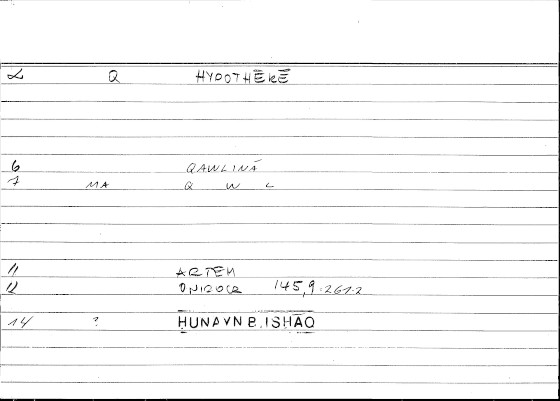 α Q HYPOTHĒKĒ
6 QAWLINĀ
7 MA Q W L
11 ARTEM
12 ONIROCR 145,9-261.2
14 ? ḤUNAYN B. ISḤĀQ